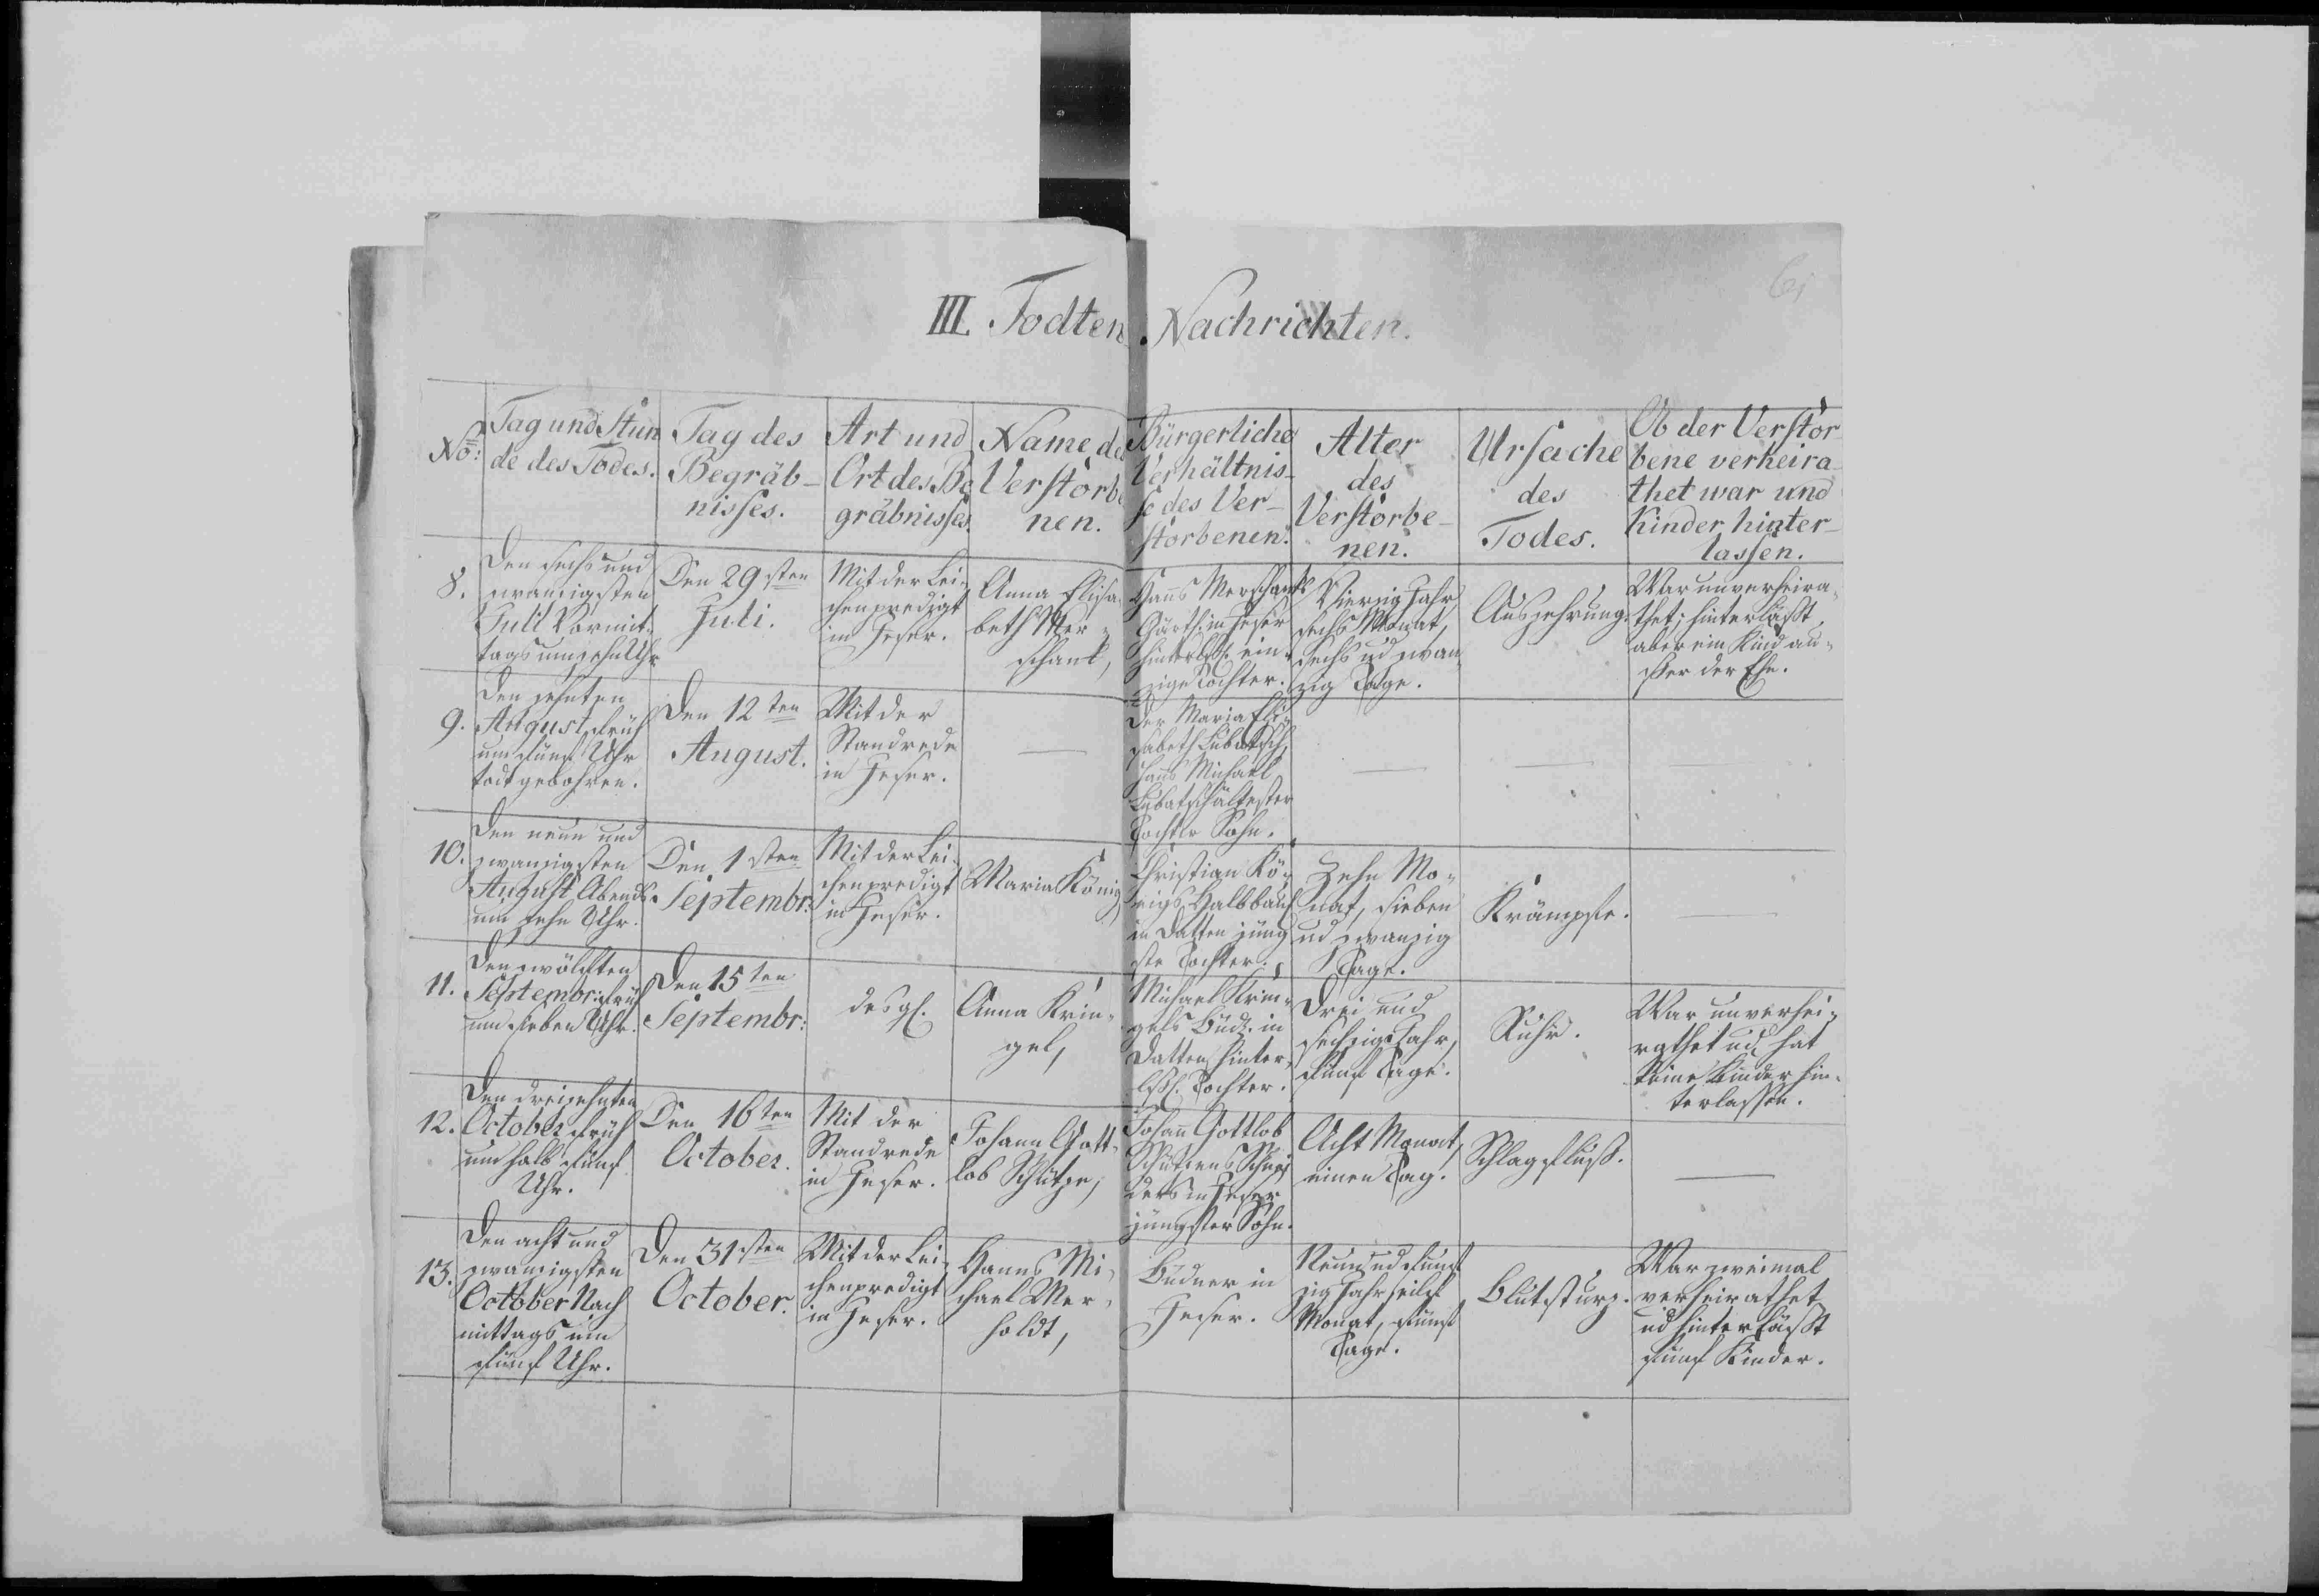 III. Todten
Nachrichten.
No:
Tag und Stun
de des Todes.
Tag des
Begräb-
nisses.
Art und
Ort des Be
gräbnisses.
Name de
Verstorbe
nen.
Bürgerliche
Verhältnis-
se des Ver-
storbenen.
Alter
des
Verstorbe-
nen.
Ursache
des
Todes.
Ob der Verstor
bene verheira-
thet war und
Kinder hinter-
lassen.
8.
Den sechs und
zwanzigsten
Juli Vormit-
tags um zehn Uhr
Den 29sten
Juli.
Mit der Lei-
chenpredigt
in Jeser.
Anna Elisa-
beth Mer-
schank,
Hanns Merschanks
Gärth. in Jeser
hinterlß. ein-
zige Tochter.
Vierzig Jahr
sechs Monat,
sechs ud zwan
zig Tage.
Auszehrung.
War unverheira-
thet; hinterläßt
aber ein Kind au-
ßer der Ehe.
9.
Den zehnten
August früh
um fünf Uhr
todt gebohren.
Den 12ten
August.
Mit der
Standrede
in Jeser.
—
Der Maria Eli-
sabeth Lubatsch,
Hans Michael
Lubatsch ältester
Tochter Sohn.
—
—
—
10.
Den neun und
zwanzigsten
August Abends
um zehn Uhr.
Den 1sten
Septembr:
Mit der Lei-
chenpredigt
in Jeser.
Maria König
Christian Kö-
nigs, Halbbau
in Datten jüng
ste Tochter.
Zehn Mo-
nat, sieben
ud zwanzig
Tage.
Krämpfe.
—
11.
Den zwölften
Septembr: früh
um sieben Uhr.
Den 15ten
Septembr:
desgl.
Anna Krin-
gel,
Michael Krin-
gels Büd. in
Datten hinter-
lß. Tochter.
Drei und
sechzig Jahr,
fünf Tage.
Ruhr.
War unverhei-
rathet ud hat
keine Kinder hin-
terlassen.
12.
Den dreizehnten
October früh
um halb fünf
Uhr.
Den 16ten
October.
Mit der
Standrede
in Jeser.
Johann Gott-
lob Schütze,
Johann Gottlob
Schützens Schnei
ders in Jeser
jüngster Sohn.
Acht Monat,
einen Tag.
Schlagfluß.
—
13.
Den acht und
zwanzigsten
October Nach
mittags um
fünf Uhr.
Den 31sten
October.
Mit der Lei-
chenpredigt
in Jeser.
Hanns Mi-
chael Mer-
holdt,
Büdner in
Jeser.
Neun ud fünf
zig Jahr eilf
Monat, fünf
Tage.
Blutsturz.
War zweimal
verheirathet
ud hinterläßt
fünf Kinder.